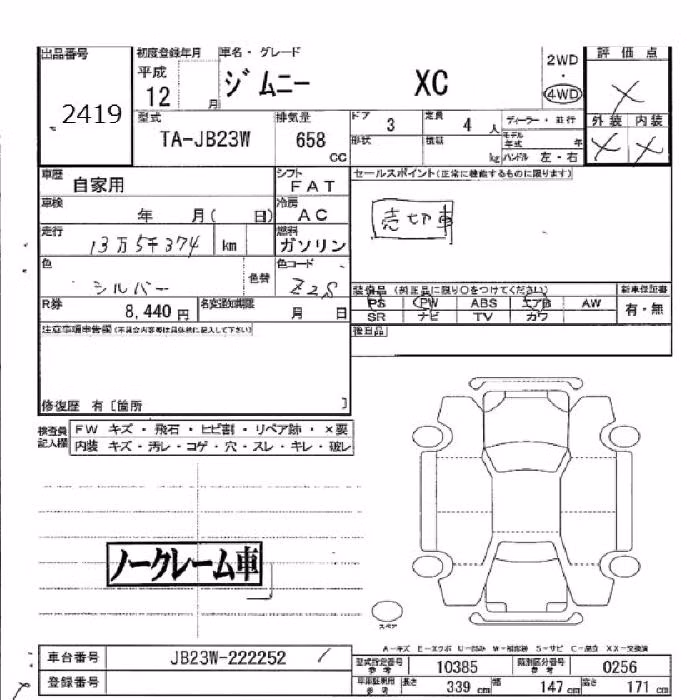 出品番号 初度登録年月 車名・グレード 2WD 評価点
2419 平成 12 月 ジムニー XC ・ 4WD ×
型式 排気量 ドア 3 定員 4 人 ディーラー・並行 外装 内装
TA-JB23W 658 CC 形状 積載 kg モデル年式 年 × ×
ハンドル 左・右
車歴 自家用 シフト FAT セールスポイント(正常に機能するものに限ります)
車検 年 月( 日) 冷房 AC 売切車
走行 13万5千374 km 燃料 ガソリン
色 シルバー 色替 色コード Z2S
装備品 (純正品に限り○をつけてください) 新車保証書
R券 8,440円 名変追加期限 月 日 PS PW ABS エアB AW 有・無
SR ナビ TV カワ
注意事項申告欄(不具合内容等は具体的に記入して下さい) 後日品
修復歴 有〔箇所 〕
検査員記入欄 FW キズ・飛石・ヒビ割・リペア跡・×要
内装 キズ・汚レ・コゲ・穴・スレ・キレ・破レ
ノークレーム車
スペア
車台番号 JB23W-222252
登録番号
型式指定番号 参考 10385 類別区分番号 参考 0256
参考 長さ 339 cm 幅 147 cm 高さ 171 cm